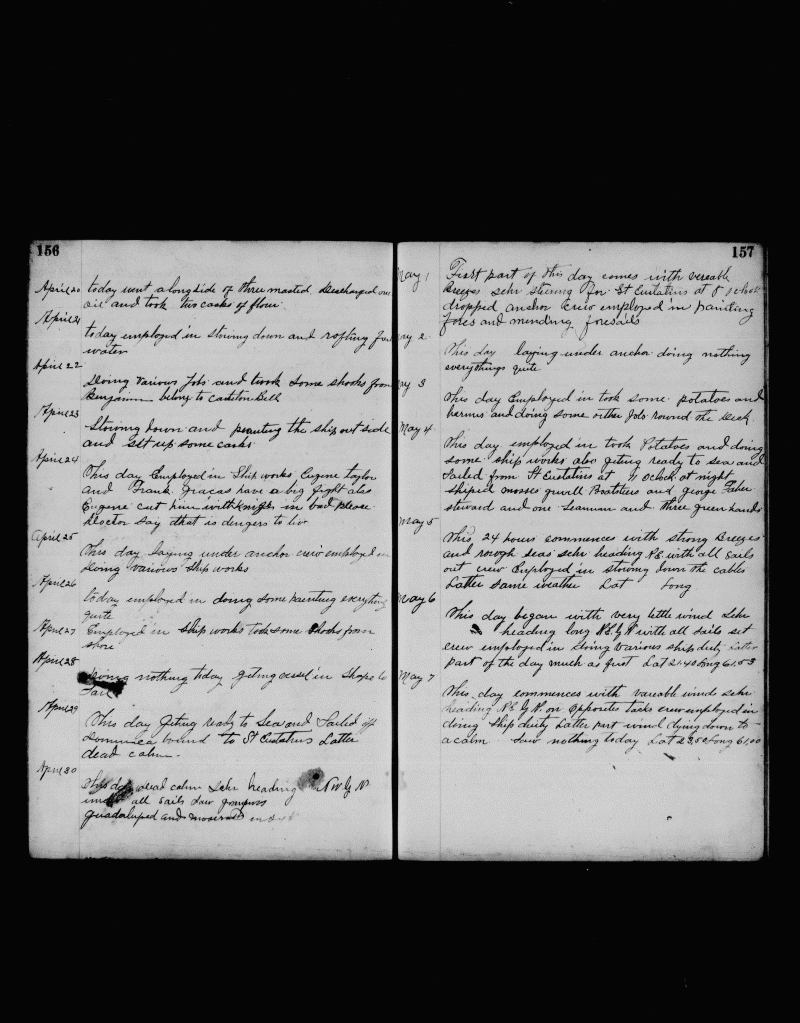 156
April 20 today went alongside of three masted. Discharged our
oil and took two casks of flour
April 21
today employed in stowing down and rafting for
water
April 22
Doing various Jobs and twook some shooks from
Benjamin belong to Carleton Bell
April 23
Stowing down and painting the ship out side
and set up some casks
April 24
This day Employed in Ship works, Eugene taylor
and Frank. Gracas have a big fight alas
Eugene cut him with knife in bad please
Doctor Say that is dengers to live
April 25
This day laying under anchor crew employed in
doing various Ship works
April 26
today employed in doing some painting everything
quite
April 27 Employed in Ship works took some Shooks from
shore
April 28
Doing nothing today geting vessel in Shape to
Sail
April 29
This day geting ready to Sea and Sailed off
Dominica bound to St Eustatius Latter
dead calm
April 30
This day dead calm Schr heading NW by N
under all sails Saw
Guadaluped and in sight
157
May 1 First part of this day comes with vereable
Breezes schr steering for St Eustatius at 8 o clock
dropped anchor crew employed in painting
fores and mending foresails
May 2
This day laying under anchor doing nothing
everythings quite
May 3
This day Employed in took some potatoes and
and doing some other Jobs round the deck
May 4
This day employed in took Potatoes and doing
some ship works also geting ready to sea and
Sailed from St Eustatius at 11 oclock at night
shiped and george
steward and one Seaman and three green hands
May 5
This 24 hours commences with strong Breezes
and rowgh seas schr heading NE with all sails
out crew Employed in stowing down the cables
Latter same weather Lat Long
May 6
This day began with very little wind Schr
heading long NE by N with all sails set
crew employed in doing various ship duty Latter
part of the day much as first Lat 21.40 Long 61.53
May 7
This day commences with variable winds schr
heading NE by N on opposites tacks crew employed in
doing Ship duty Latter part wind dying down to
a calm Saw nothing today Lat 23.50 Long 61,00